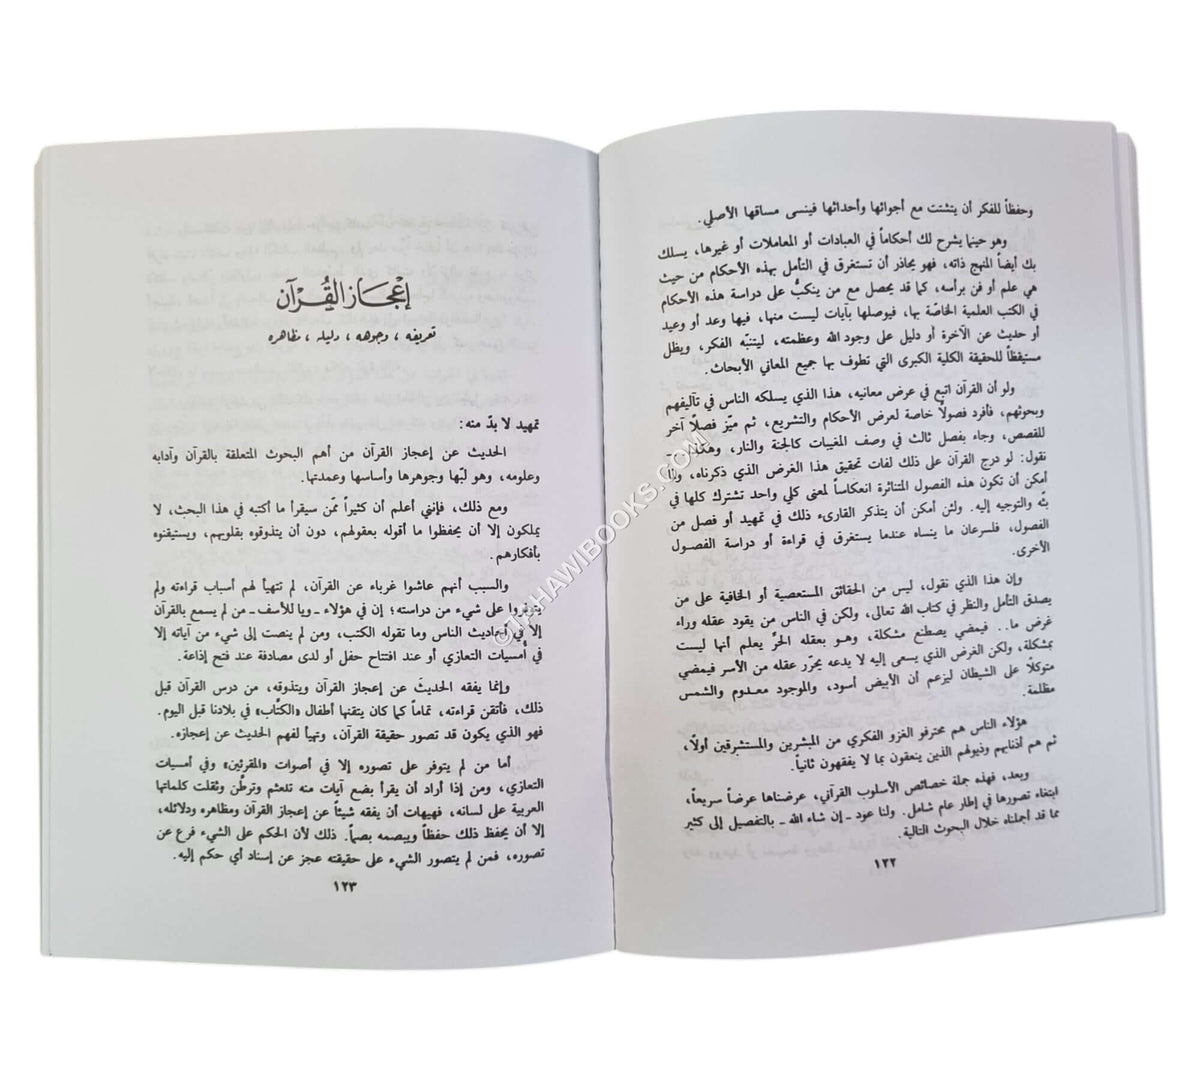 وحفظاً للفكر أن يتشتت مع أجوائها وأحداثها فينسى مساقها الأصلي.
وهو حينما يشرح لك أحكاماً في العبادات أو المعاملات أو غيرها، يسلك
بك أيضاً المنهج ذاته، فهو يحاذر أن تستغرق في التأمل بهذه الأحكام من حيث
هي علم أو فن برأسه، كما قد يحصل مع من ينكبُّ على دراسة هذه الأحكام
في الكتب العلمية الخاصّة بها، فيوصلها بآيات ليست منها، فيها وعد أو وعيد
أو حديث عن الآخرة أو دليل على وجود الله وعظمته، ليتنبّه الفكر، ويظل
مستيقظاً للحقيقة الكلية الكبرى التي تطوف بها جميع المعاني الأبحاث.
ولو أن القرآن اتبع في عرض معانيه، هذا الذي يسلكه الناس في تآليفهم
وبحوثهم، فأفرد فصولاً خاصة لعرض الأحكام والتشريع، ثم ميّز فصلاً آخر
للقصص، وجاء بفصل ثالث في وصف المغيبات كالجنة والنار، وهكذا..
نقول: لو درج القرآن على ذلك لفات تحقيق هذا الغرض الذي ذكرناه، ولما
أمكن أن تكون هذه الفصول المتناثرة انعكاساً لمعنى كلي واحد تشترك كلها في
بثّه والتوجيه إليه. ولئن أمكن أن يتذكر القارىء ذلك في تمهيد أو فصل من
الفصول، فلسرعان ما ينساه عندما يستغرق في قراءة أو دراسة الفصول
الأخرى.
وإن هذا الذي نقول، ليس من الحقائق المستعصية أو الخافية على من
يصدق التأمل والنظر في كتاب الله تعالى، ولكن في الناس من يقود عقله وراء
غرض ما.. فيمضي يصطنع مشكلة، وهو بعقله الحرِّ يعلم أنها ليست
بمشكلة، ولكن الغرض الذي يسعى إليه لا يدعه يحرّر عقله من الأسر فيمضي
متوكلاً على الشيطان ليزعم أن الأبيض أسود، والموجود معدوم والشمس
مظلمة.
هؤلاء الناس هم محترفو الغزو الفكري من المبشرين والمستشرقين أولاً،
ثم هم أذنابهم وذيولهم الذين ينعقون بما لا يفقهون ثانياً.
وبعد، فهذه جملة خصائص الأسلوب القرآني، عرضناها عرضاً سريعاً،
ابتغاء تصورها في إطار عام شامل. ولنا عود ـ إن شاء الله ـ بالتفصيل إلى كثير
مما قد أجملناه خلال البحوث التالية.
١٢٢
إعجاز القرآن
تعريفه ، وجوهه ، دليله ، مظاهره
تمهيد لا بدّ منه:
الحديث عن إعجاز القرآن من أهم البحوث المتعلقة بالقرآن وآدابه
وعلومه، وهو لبّها وجوهرها وأساسها وعمدتها.
ومع ذلك، فإنني أعلم أن كثيراً ممّن سيقرأ ما أكتبه في هذا البحث، لا
يملكون إلا أن يحفظوا ما أقوله بعقولهم، دون أن يتذوقوه بقلوبهم، ويستيقنوه
بأفكارهم.
والسبب أنهم عاشوا غرباء عن القرآن، لم تتهيأ لهم أسباب قراءته ولم
يتوفروا على شيء من دراسته؛ إن في هؤلاء ـ ويا للأسف ـ من لم يسمع بالقرآن
إلا في أحاديث الناس وما تقوله الكتب، ومن لم ينصت إلى شيء من آياته إلا
في أمسيات التعازي أو عند افتتاح حفل أو لدى مصادفة عند فتح إذاعة.
وإنما يفقه الحديثَ عن إعجاز القرآن ويتذوقه، من درس القرآن قبل
ذلك، فأتقن قراءته، تماماً كما كان يتقنها أطفال «الكتّاب» في بلادنا قبل اليوم.
فهو الذي يكون قد تصور حقيقة القرآن، وتهيأ لفهم الحديث عن إعجازه.
أما من لم يتوفر على تصوره إلا في أصوات «المقرئين» وفي أمسيات
التعازي، ومن إذا أراد أن يقرأ بضع آيات منه تلعثم وترطَّن وثقلت كلماتها
العربية على لسانه، فهيهات أن يفقه شيئاً عن إعجاز القرآن ومظاهره ودلائله،
إلا أن يحفظ ذلك حفظاً ويبصمه بصماً. ذلك لأن الحكم على الشيء فرع عن
تصوره، فمن لم يتصور الشيء على حقيقته عجز عن إسناد أي حكم إليه.
١٢٣
©TAHAWIBOOKS.COM